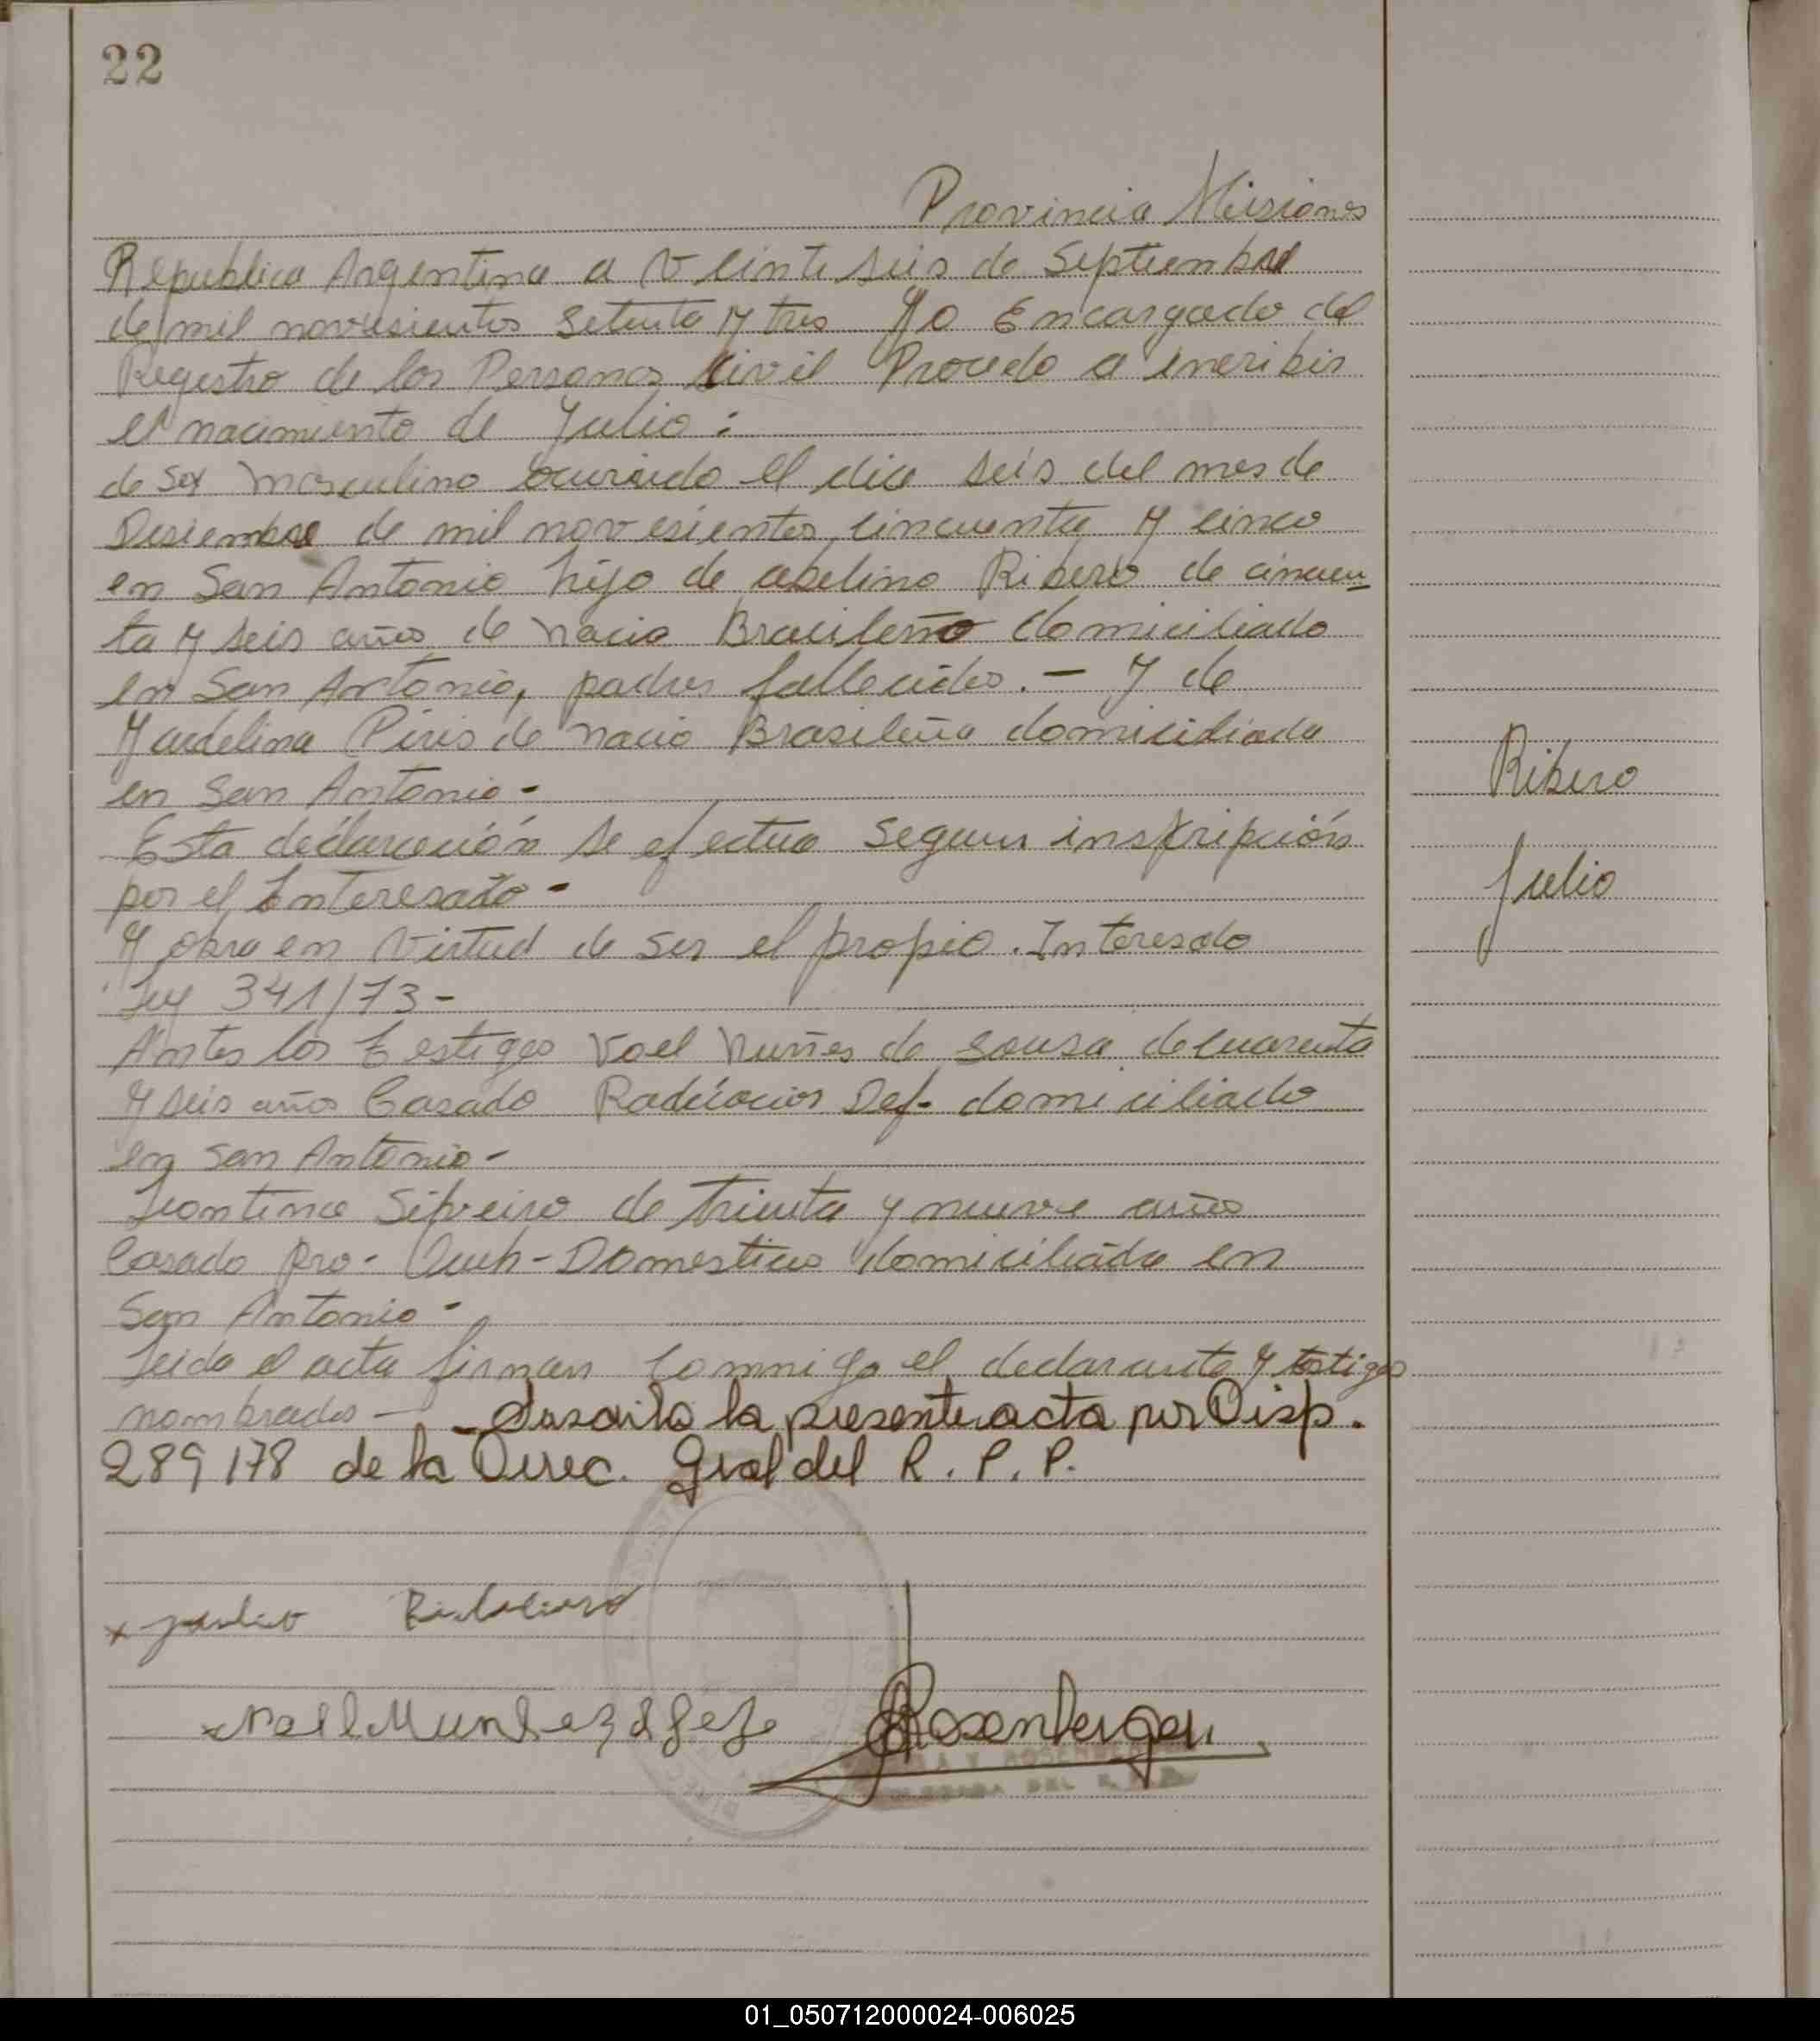 22
Provincia Misiones
Republica Argentina a Veinte seis de Septiembre
de mil novesientos setenta y tres Yo Encargado del
Registro de las Personas Civil Procedo a inscribir
el nacimiento de Julio :
de sex masculino ocurrido el dia seis del mes de
Desiembre de mil novesientos cincuenta y cinco
en San Antonio hijo de abelino Ribero de cincuen
ta y seis años de nacio Brasileño domiciliado
en San Antonio, padres fallecidos. - y de
Pires de nacio Brasileña domiciliada
en San Antonio -
Esta declaración se efectua segun inskripción
por el Interesado -
y obra en Virtud de ser el propio. Interesado
Ley 341/73 -
Antes los Testigos Voel Nuñes de Sousa de cuarenta
y seis años Casado Def- domiciliado
en San Antonio -
Leontina Silveiro de trienta y nueve años
Casado Pro- Domesticos domiciliada en
San Antonio -
Leida el acta firman commigo el declarante y testigos
nombrados - - Suscrita la presente acta por Disp.
289/78 de la Direc. Gral del R. P. P.
Ribero
Julio
x Julio
Rosenberger
01_050712000024-006025